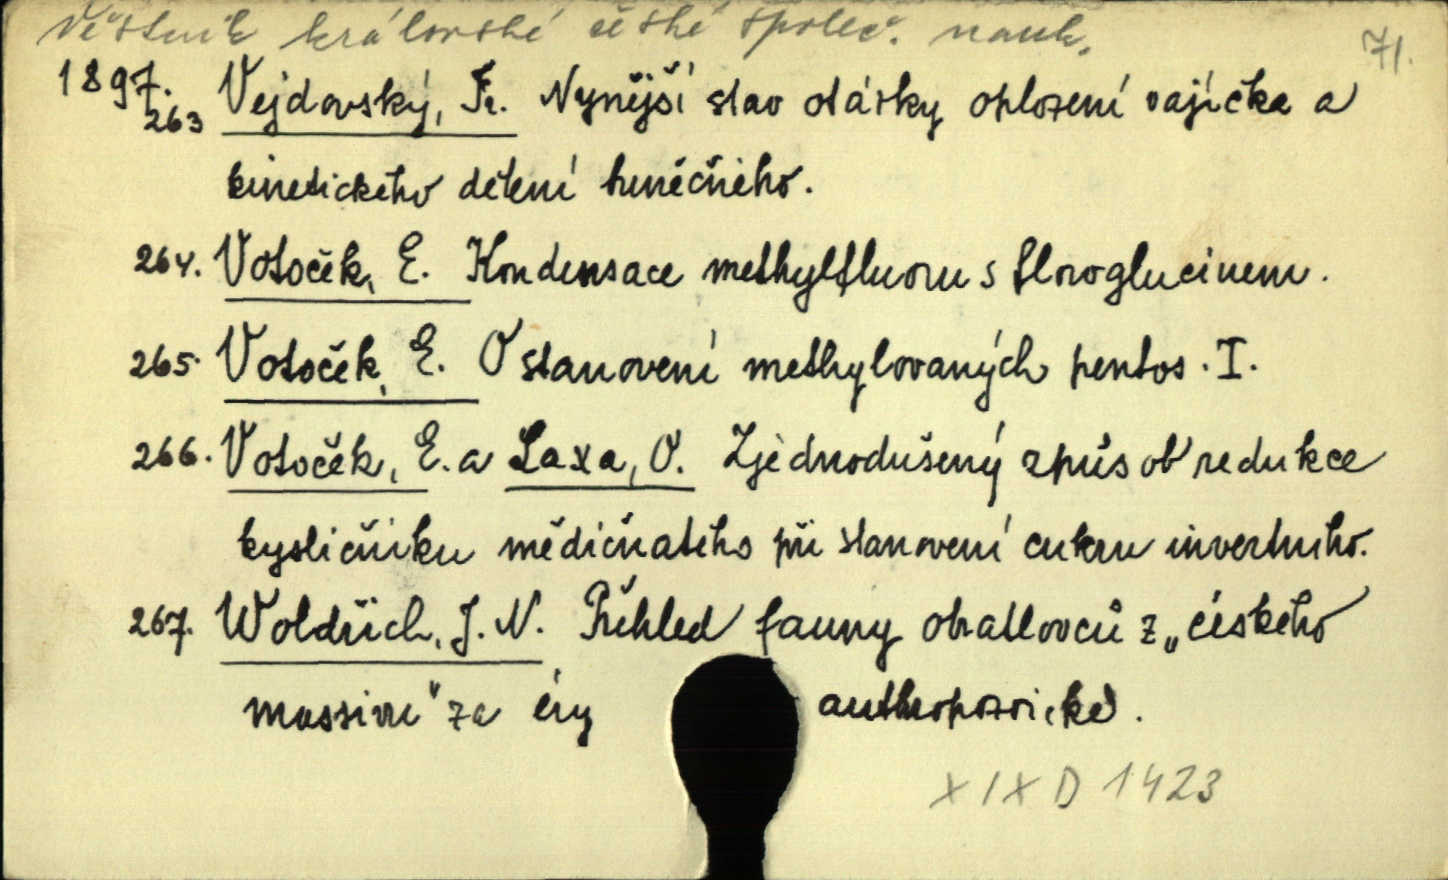 Věstník královské české společ. nauk.
71.
1897.
263 Vejdovský, Fr. Nynější stav otázky oplození vajíčka a
kinetického dělení buněčného.
264. Votoček, E. Kondensace methylfluoru s floroglucinem.
265. Votoček, E. O stanovení methylovaných pentos. I.
266. Votoček, E. a Laxa, O. Zjednodušený způsob redukce
kysličníku mědičnatého při stanovení cukru invertního.
267. Woldřich, J. N. Přehled fauny obratlovců z „českého
massivu" za éry anthropozoické.
XIX D 1423